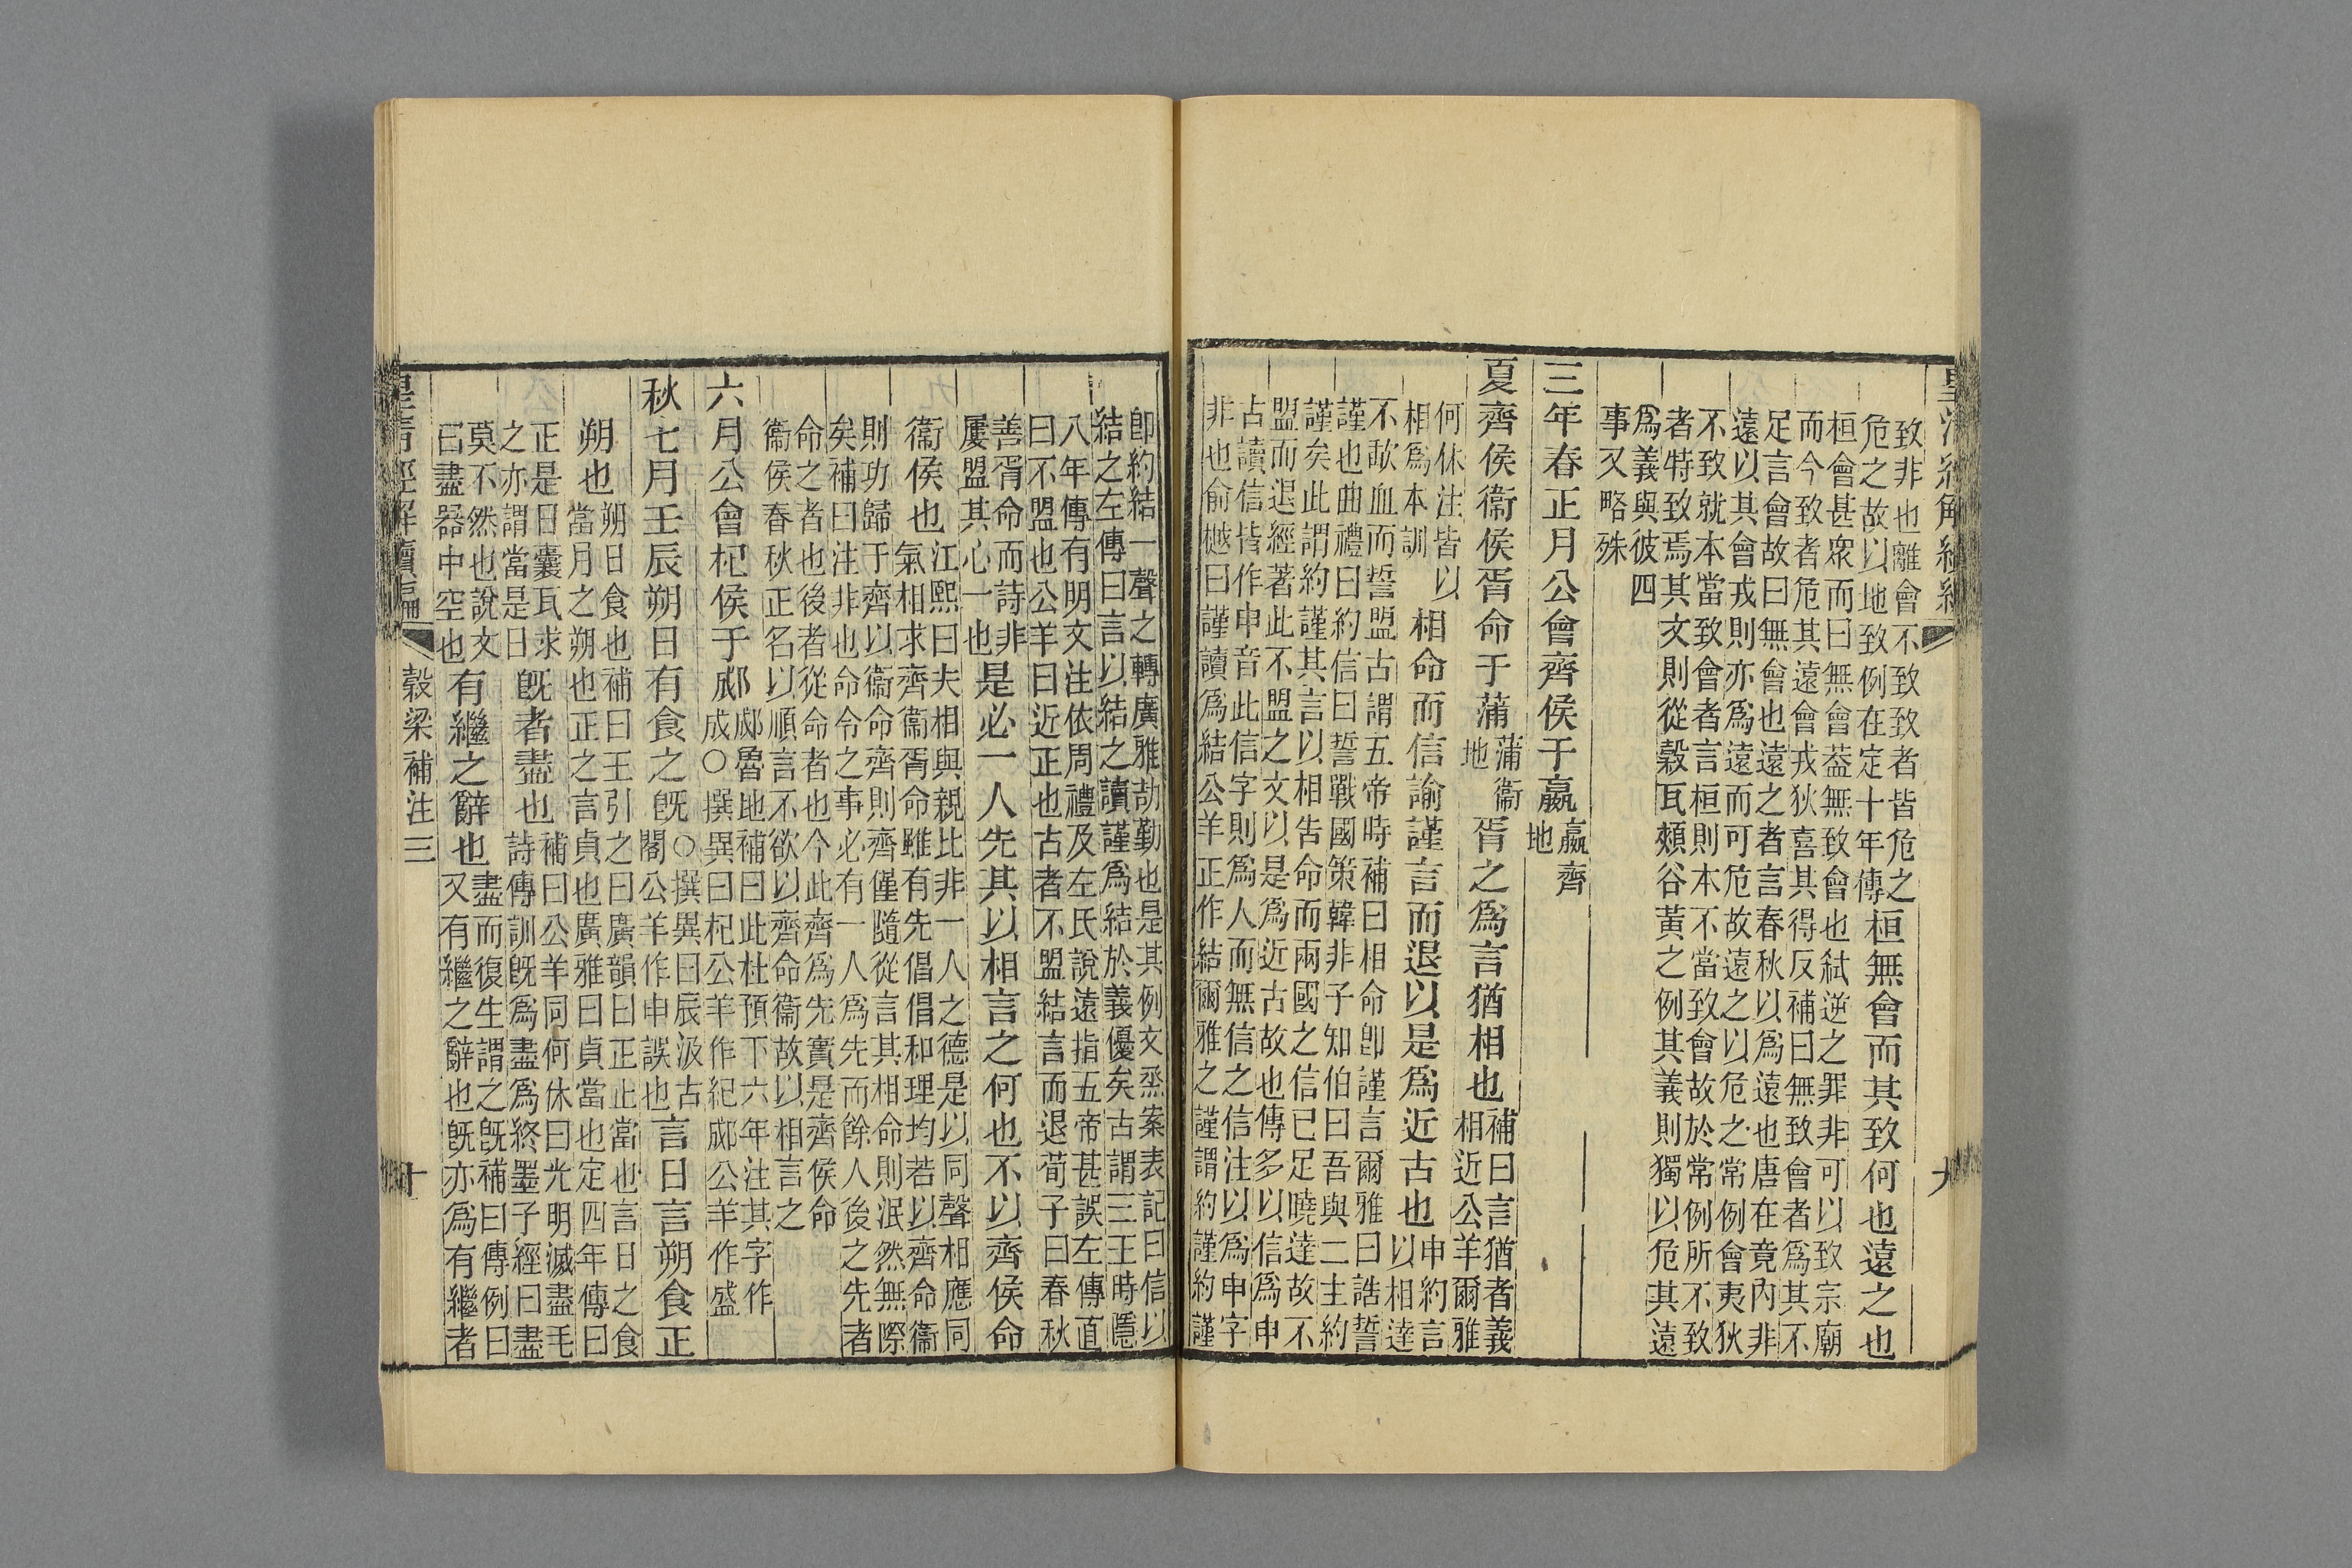 致非也離會不致致者皆危之
危之故以地致例在定十年傳
桓無會而其致何也遠之也
桓會甚衆而曰無會葢無致會也弑逆之罪非可以致宗廟
而今致者危其遠會戎狄喜其得反補曰無致會者爲其不
足言會故曰無會也遠之者言春秋以爲遠也唐在竟內非
遠以其會戎則亦爲遠而可危故遠之以危之常例會夷狄
不致就本當致會者言桓則本不當致會故於常例所不致
者特致焉其文則從穀瓦頰谷黃之例其義則獨以危其遠
爲義與彼四
事又略殊
三年春正月公會齊侯于嬴
嬴齊
地
夏齊侯衞侯胥命于蒲
蒲衞
地
胥之爲言猶相也
補曰言猶者義
相近公羊爾雅
何休注皆以
相爲本訓
相命而信諭謹言而退以是爲近古也
申約言
以相達
不歃血而誓盟古謂五帝時補曰相命卽謹言爾雅曰誥誓
謹也曲禮曰約信曰誓戰國策韓非子知伯曰吾與二主約
謹矣此謂約謹其言以相告命而兩國之信已足曉達故不
盟而退經著此不盟之文以是爲近古故也傳多以信爲申
古讀信皆作申音此信字則爲人而無信之信注以爲申字
非也俞樾曰謹讀爲結公羊正作結爾雅之謹謂約謹約謹
卽約結一聲之轉廣雅劼勤也是其例文烝案表記曰信以
結之左傳曰言以結之讀謹爲結於義優矣古謂三王時隱
八年傳有明文注依周禮及左氏說遠指五帝甚誤左傳直
曰不盟也公羊曰近正也古者不盟結言而退荀子曰春秋
善胥命而詩非
屢盟其心一也
是必一人先其以相言之何也不以齊侯命
衞侯也
江熙曰夫相與親比非一人之德是以同聲相應同
氣相求齊衞胥命雖有先倡倡和理均若以齊命衞
則功歸于齊以衞命齊則齊僅隨從言其相命則泯然無際
矣補曰注非也命令之事必有一人爲先而餘人後之先者
命之者也後者從命者也今此齊爲先實是齊侯命
衞侯春秋正名以順言不欲以齊命衞故以相言之
六月公會杞侯于郕
郕魯地補曰此杜預下六年注其字作
成〇撰異曰杞公羊作紀郕公羊作盛
秋七月壬辰朔日有食之旣
〇撰異曰辰汲古
閣公羊作申誤也
言日言朔食正
朔也
朔日食也補曰王引之曰廣韻曰正止當也言日之食
當月之朔也正之言貞也廣雅曰貞當也定四年傳曰
正是日囊瓦求
之亦謂當是日
旣者盡也
補曰公羊同何休曰光明滅盡毛
詩傳訓旣爲盡爲終墨子經曰盡
莫不然也說文
曰盡器中空也
有繼之辭也
盡而復生謂之旣補曰傳例曰
又有繼之辭也旣亦爲有繼者
穀梁補注三
十